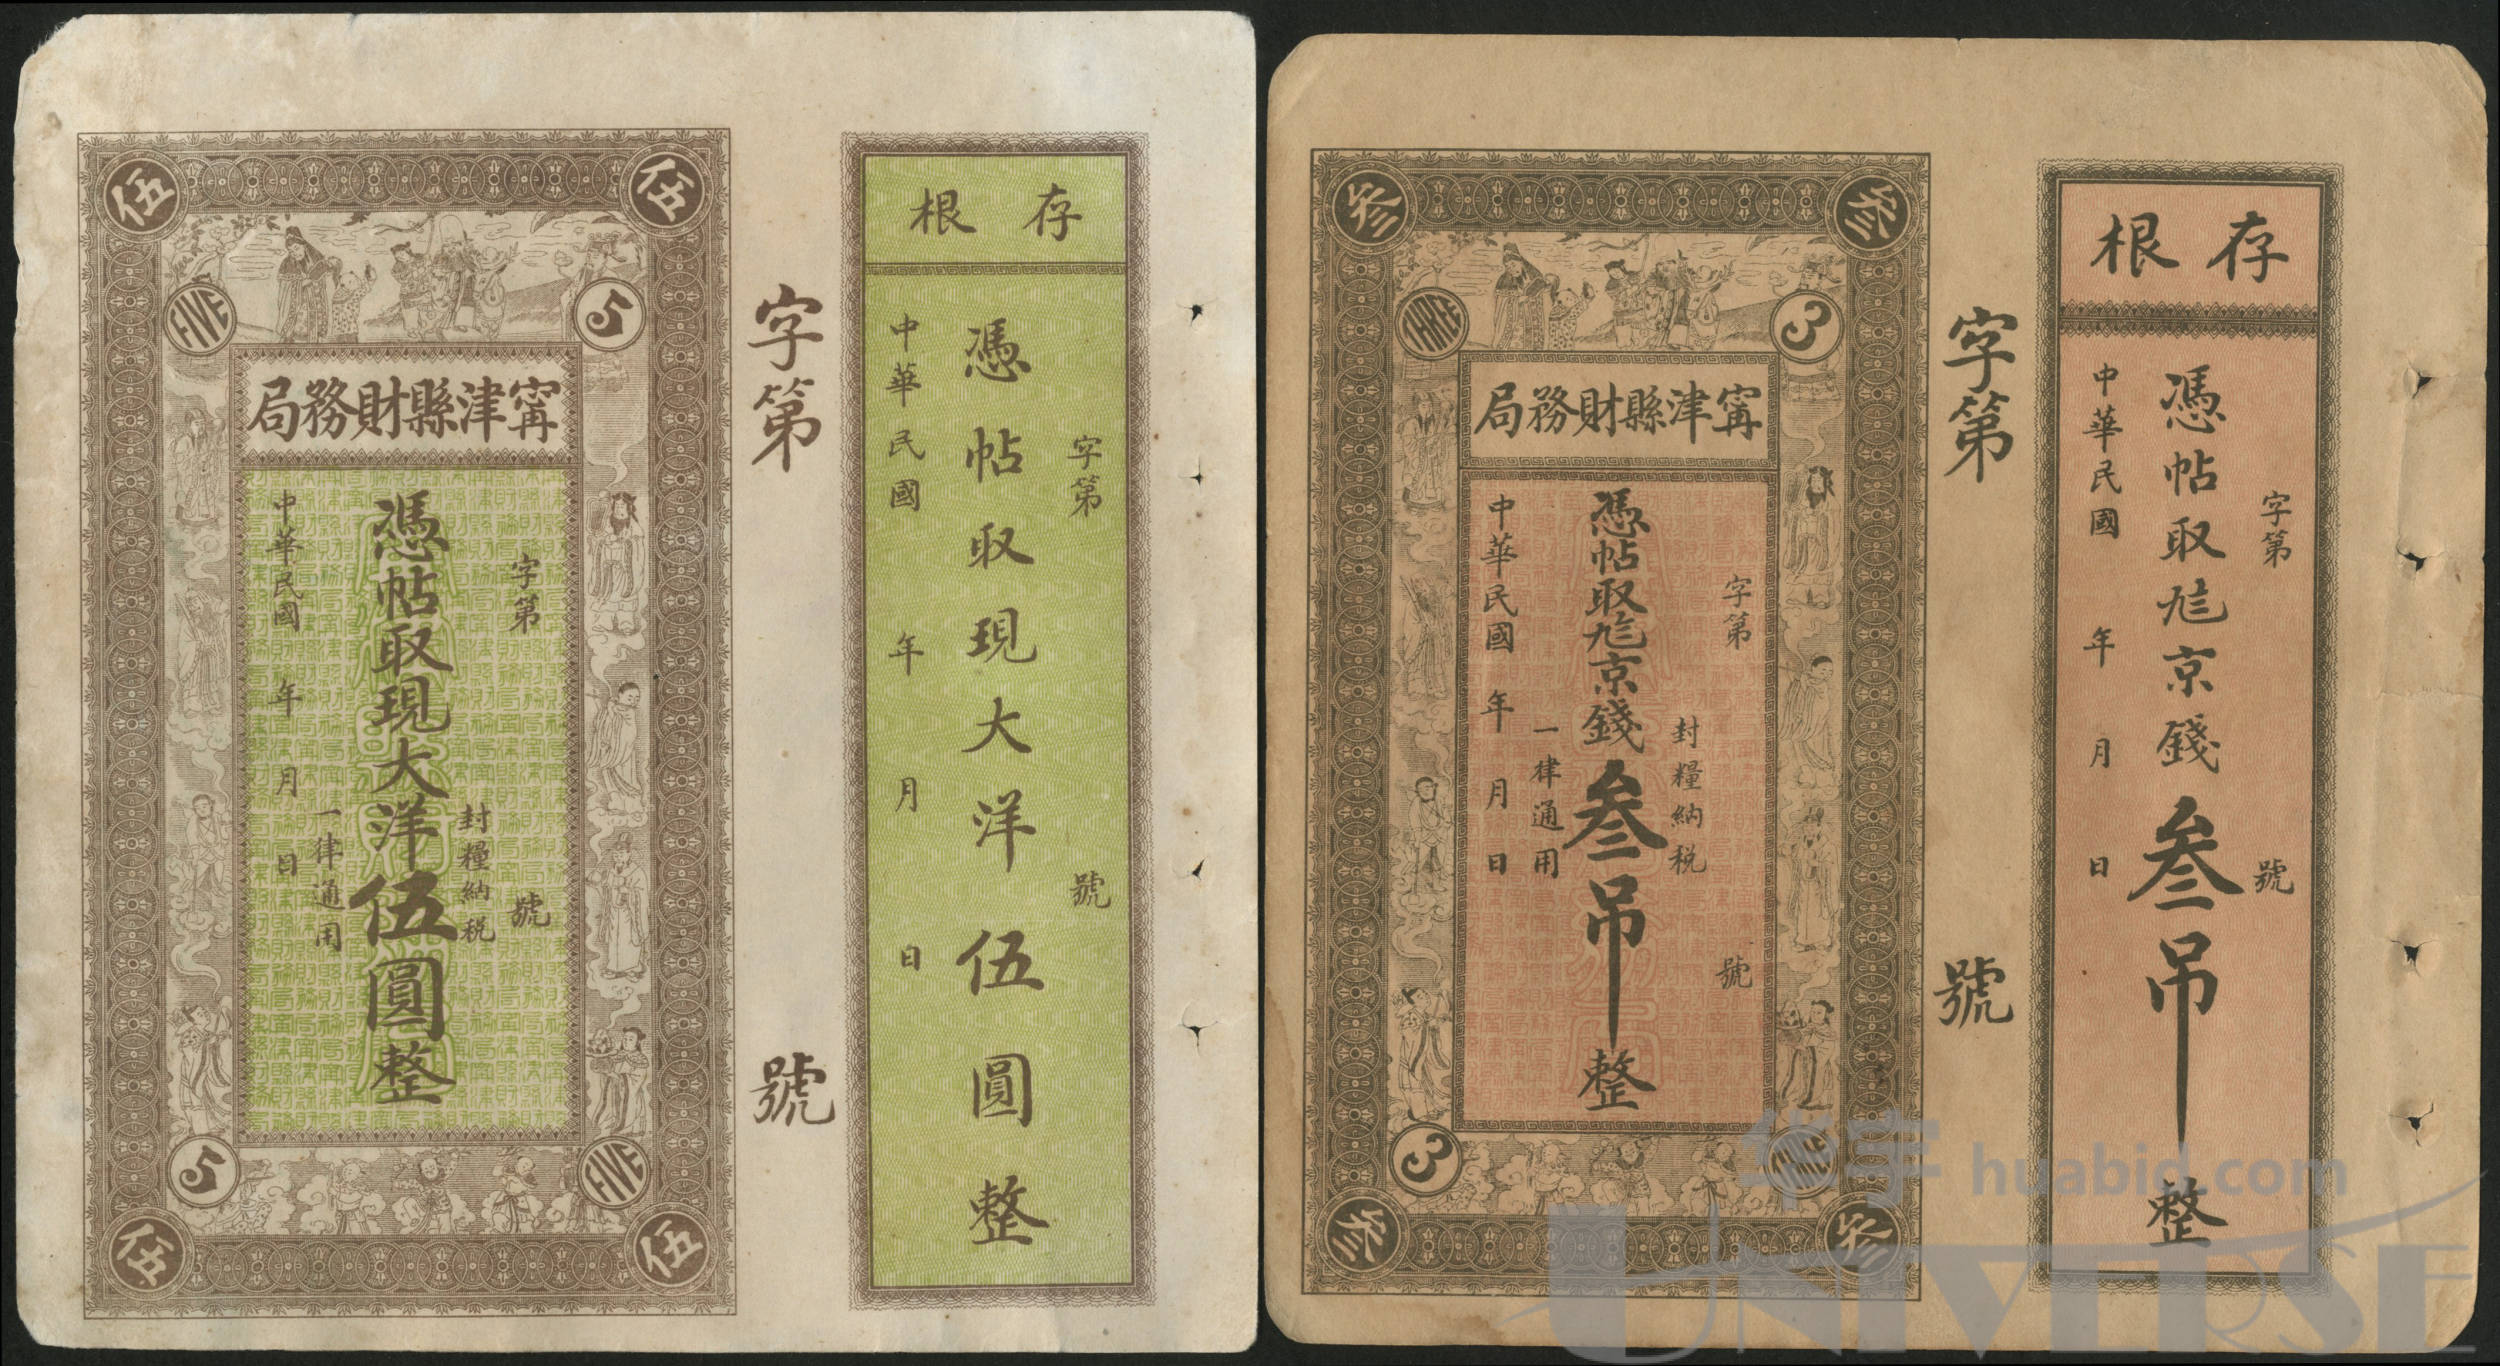 伍
伍
FIVE
5
寗津縣財務局
字第
號
憑帖取現大洋伍圓整
封糧納税
一律通用
中華民國 年 月 日
5
FIVE
伍
伍
字第
號
存根
字第
號
憑帖取現大洋伍圓整
中華民國 年 月 日
叁
叁
THREE
3
寗津縣財務局
字第
號
封糧納税
一律通用
中華民國 年 月 日
3
THREE
叁
叁
字第
號
存根
字第
號
中華民國 年 月 日
华宇 huabid.com
UNIVERSE